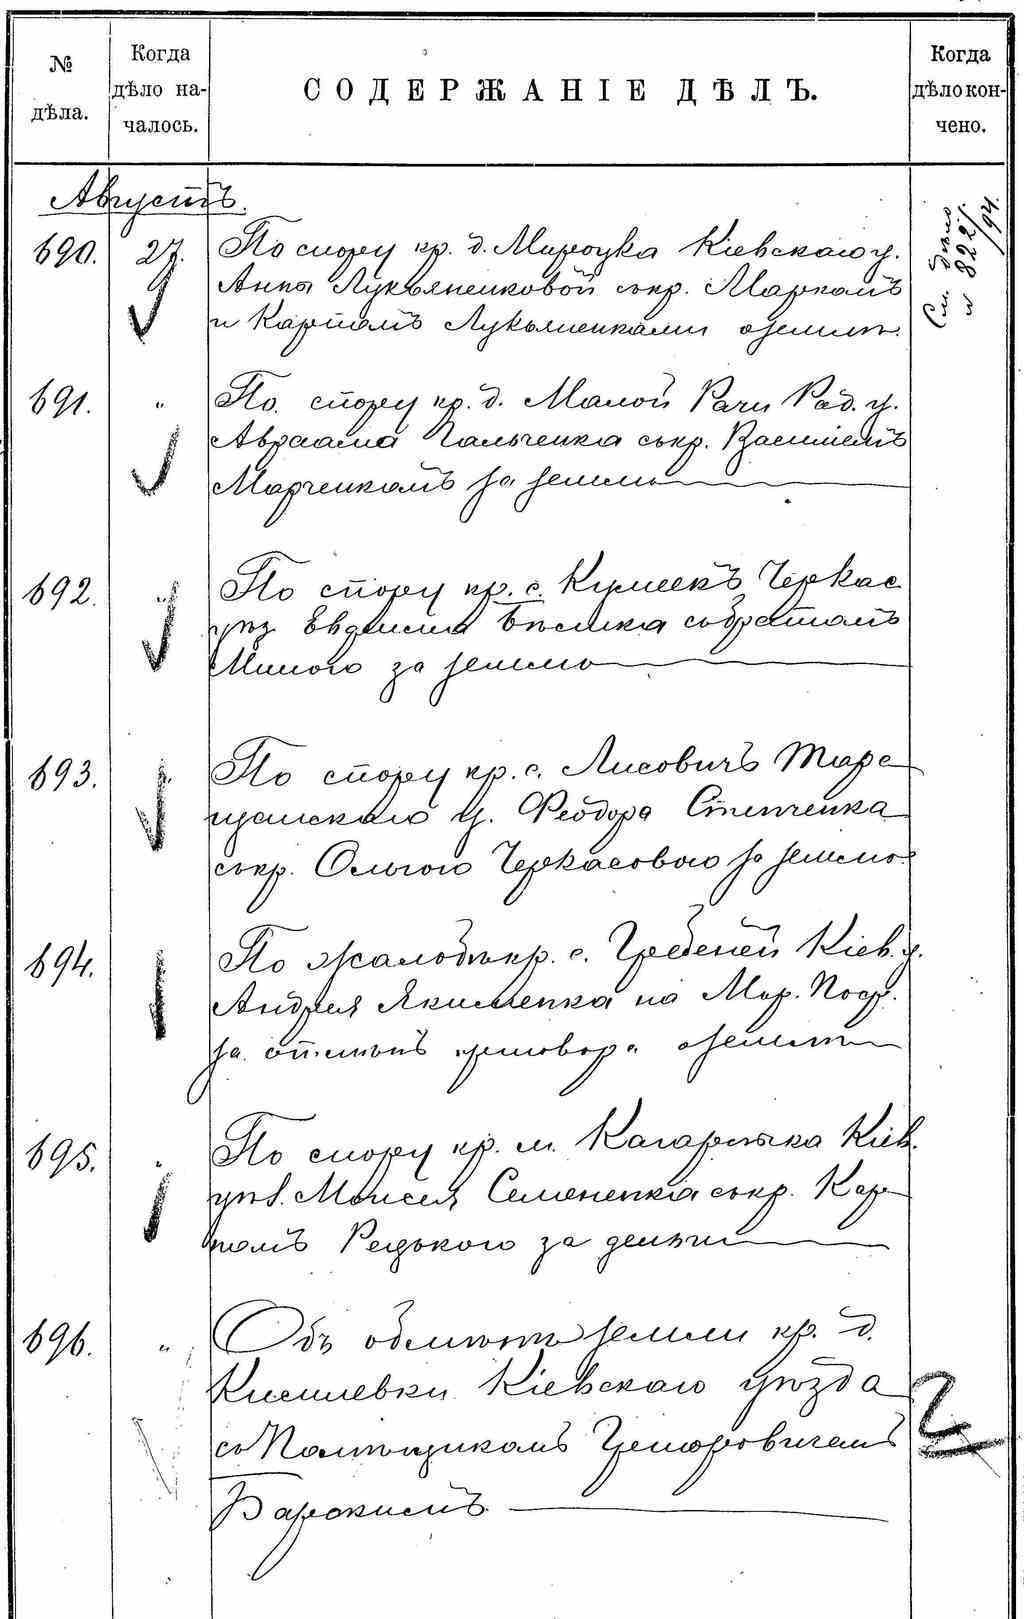 № дѣла.
Когда дѣло началось.
СОДЕРЖАНІЕ ДѢЛЪ.
Когда дѣло кончено.
Августъ.
См. дѣло
№ 822/94.
690. 27. По спору кр. д. Мироцка Кіевскаго у.
Анны Лукьяненковой съ кр. Маркомъ
и Карпомъ Лукьяненками о землѣ.
691. " По спору кр. д. Малой Рачи Рад. у.
Авраама Гальченка съ кр. Василіемъ
Марченкомъ за землю
692. " По спору кр. с. Кумеекъ Черкас
уѣз. съ братомъ
за землю
693. " По спору кр. с. Лисовичъ Тара
щанскаго у. Феодора Степченка
съ кр. Ольгою Черкасовою за землю.
694. По жалобѣ кр. с. Гребеней Кіев. у.
Андрея Якименка на Мир. Поср.
за о землѣ
695. " По спору кр. м. Кагарлыка Кіев.
уѣз. Моисея Семененка съ кр. Кар
помъ Редькою за деньги
696. " Объ обмѣнѣ земли кр. д.
Кіевскаго уѣзда
съ Помѣщикомъ Григоровичемъ
Барскимъ